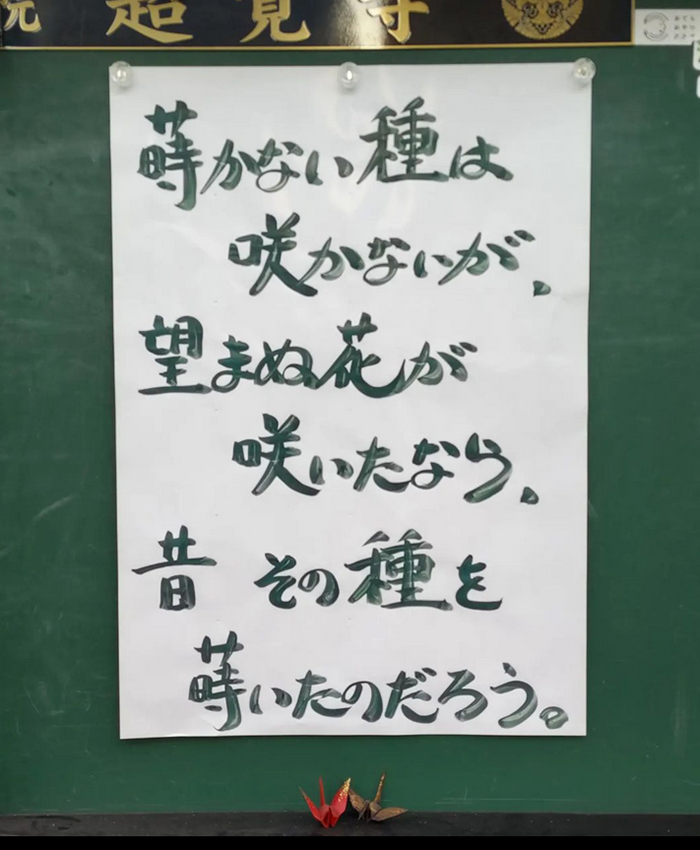 院 超覚寺
蒔かない種は
咲かないが、
望まぬ花が
咲いたなら、
昔 その種を
蒔いたのだろう。